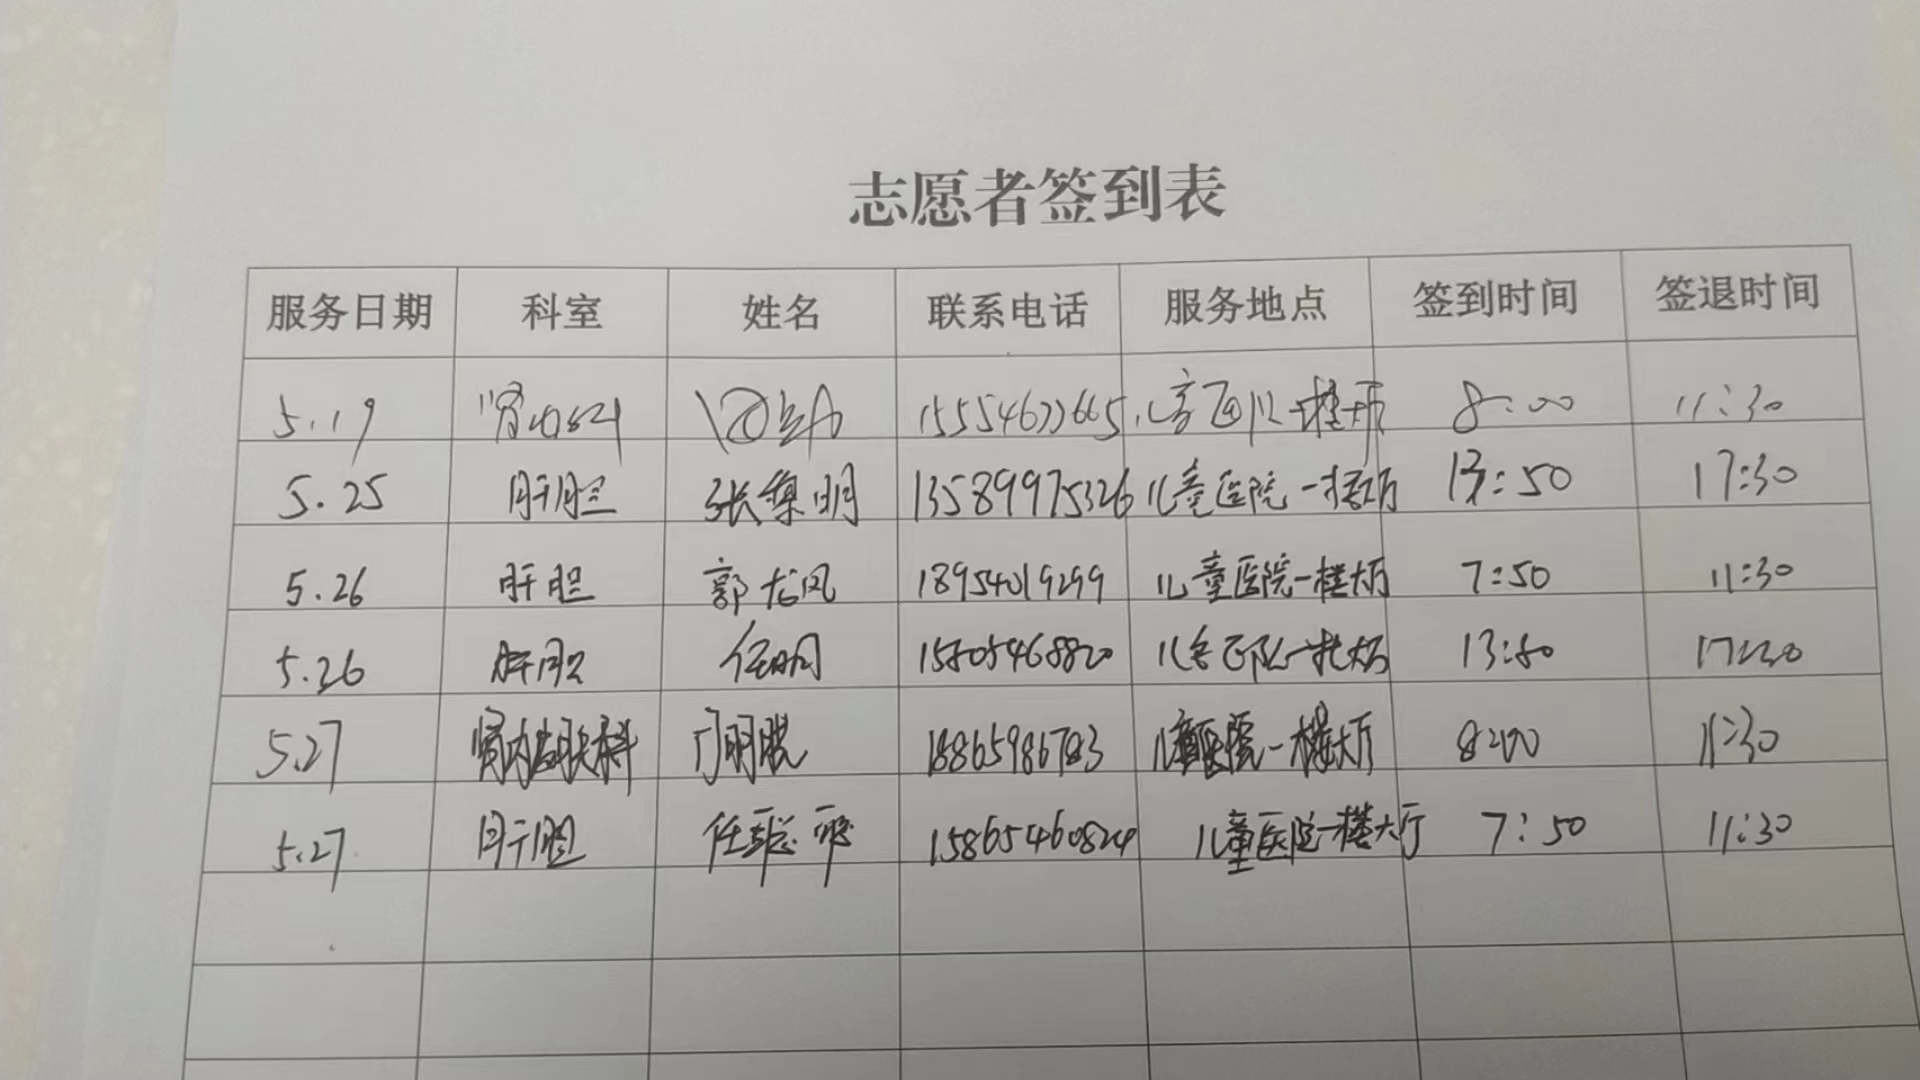 志愿者签到表
服务日期 科室 姓名 联系电话 服务地点 签到时间 签退时间
5.19 肾内科 15554677665 儿童医院一楼大厅 8:00 11:30
5.25 肝胆 张集明 13589975326 儿童医院一楼大厅 13:50 17:30
5.26 肝胆 郭龙凤 18954019299 儿童医院一楼大厅 7:50 11:30
5.26 肝胆 任明 15805468820 儿童医院一楼大厅 13:50 17:30
5.27 肾内 科 18865986783 儿童医院一楼大厅 8:00 11:30
5.27 肝胆 任 15865460824 儿童医院一楼大厅 7:50 11:30